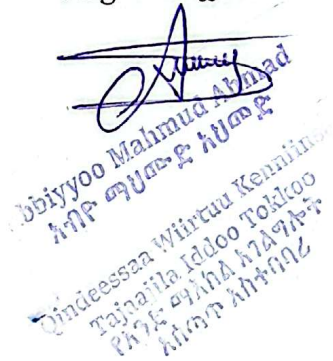 bbiyyoo Mahmud Ahmad
አብዮ ማህሙድ አህመድ
Qindeessaa Wiirtuu Kenniinsa
Tajaajila Iddoo Tokkoo
የአንድ ማእከል አገልግሎት
አሰጣጥ አስተባባሪ